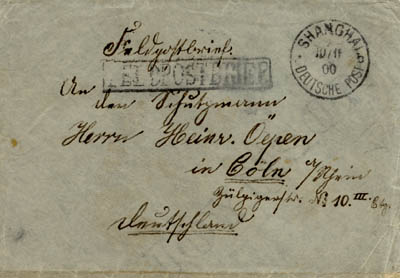 Feldpostbrief.
FELDPOSTBRIEF
SHANGHAI
10/11
00
DEUTSCHE POST
An
den Schutzmann
Herrn Heinr. Oepen
in Cöln a/Rhein
Zülpigerstr. No 10. III. Etg.
Deutschland